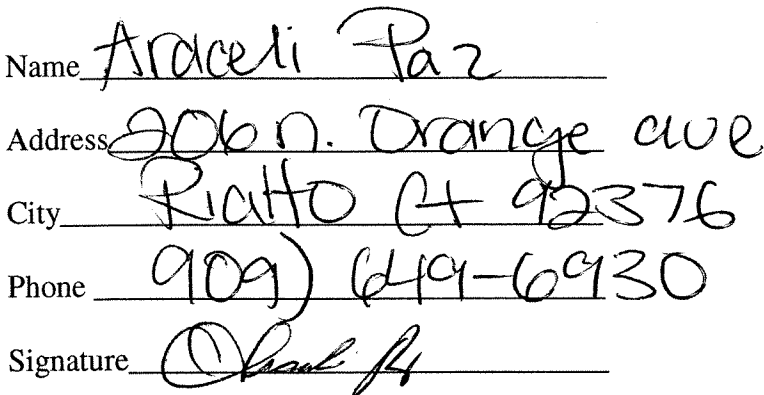 Name Araceli Paz
Address 206 n. Orange ave
City Rialto CA 92376
Phone 909) 649-6930
Signature